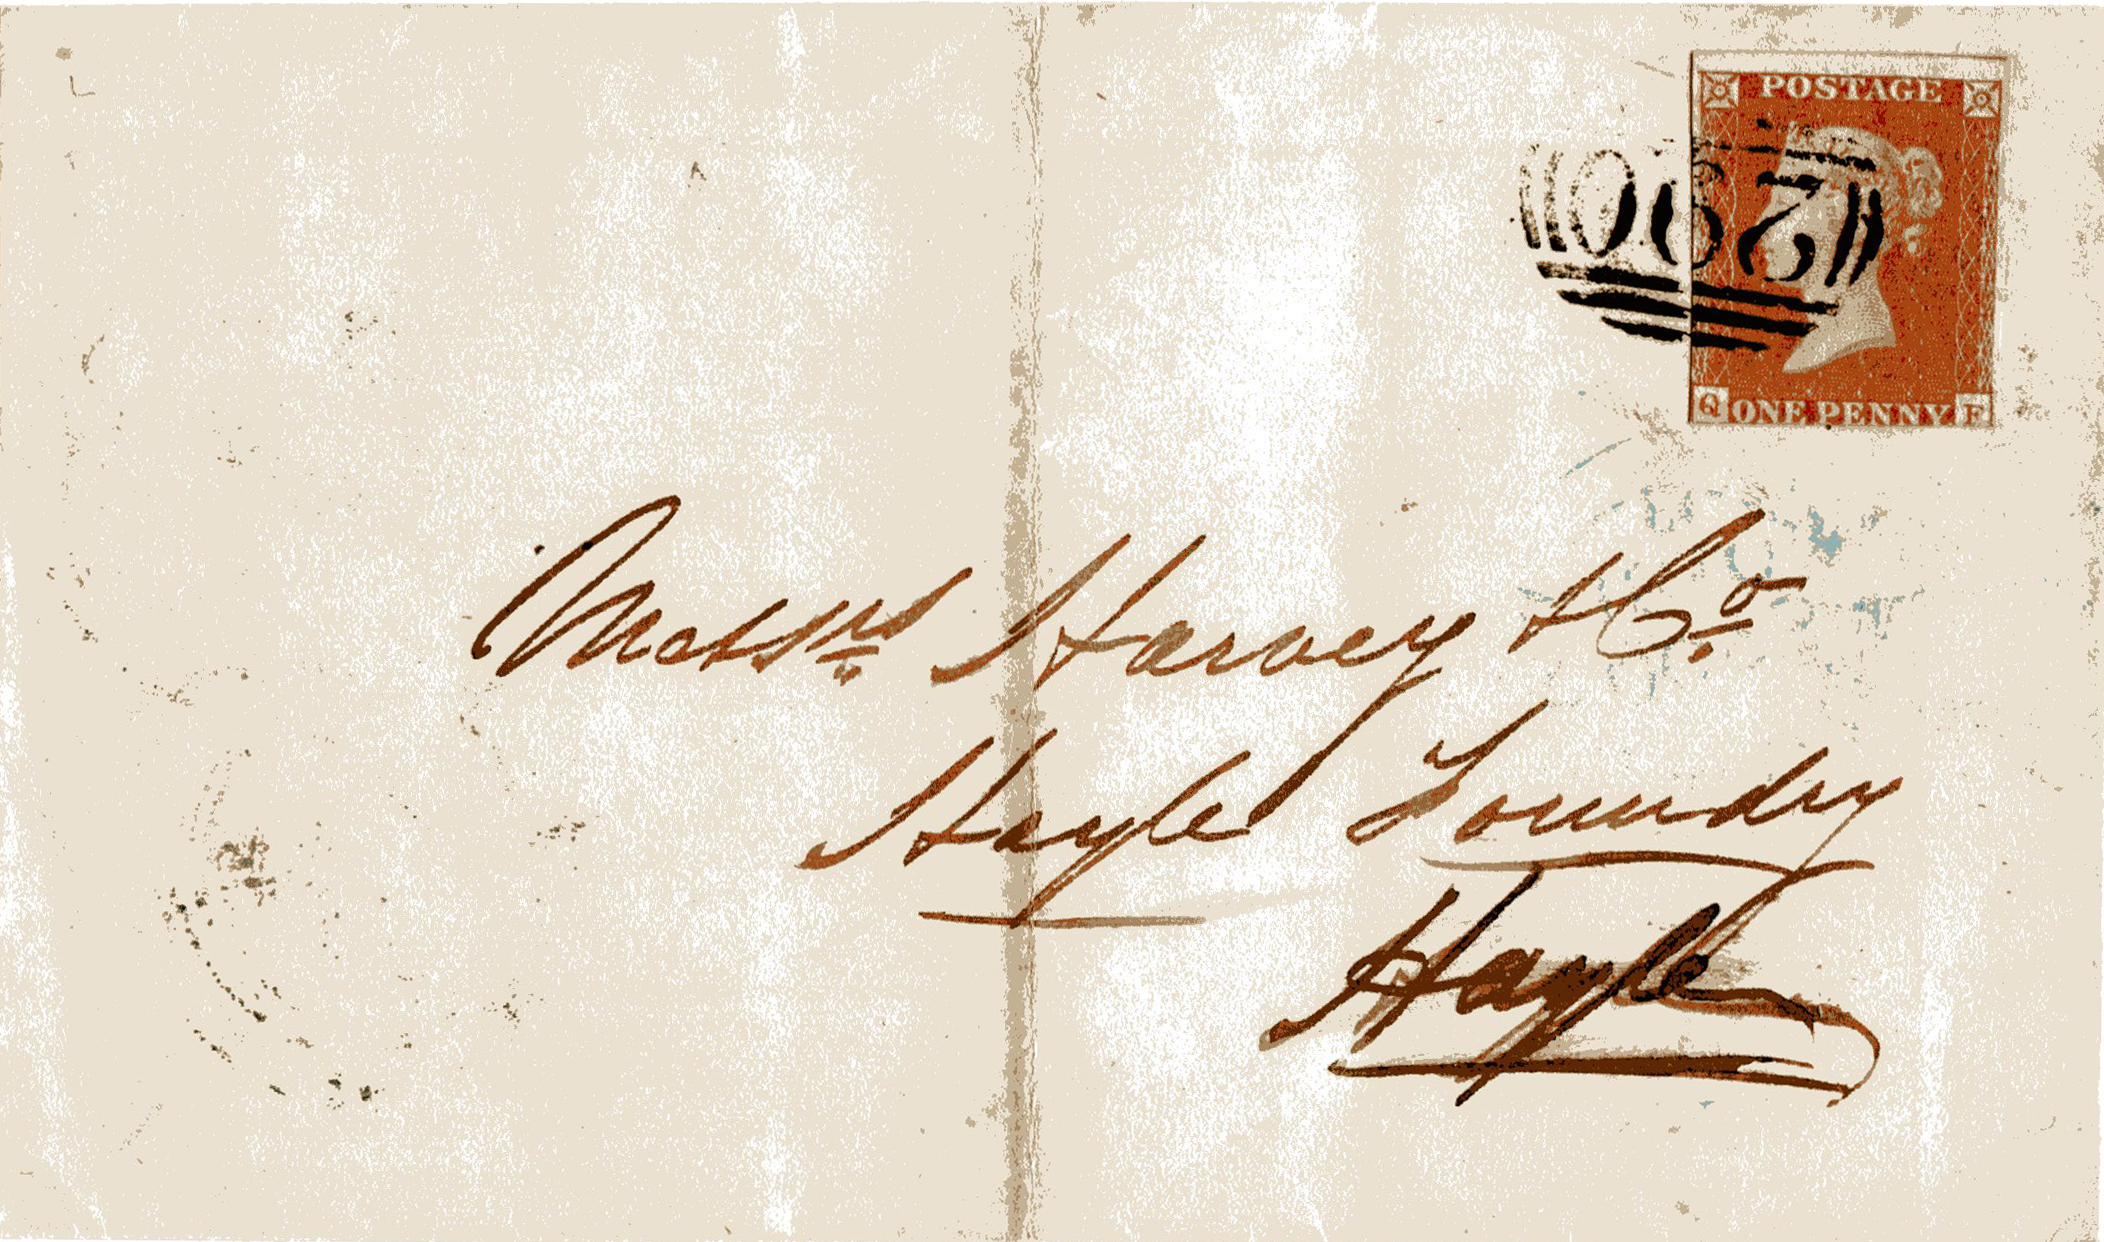 POSTAGE
Q ONE PENNY F
Messrs Harvey & Co
Hayle Foundry
Hayle